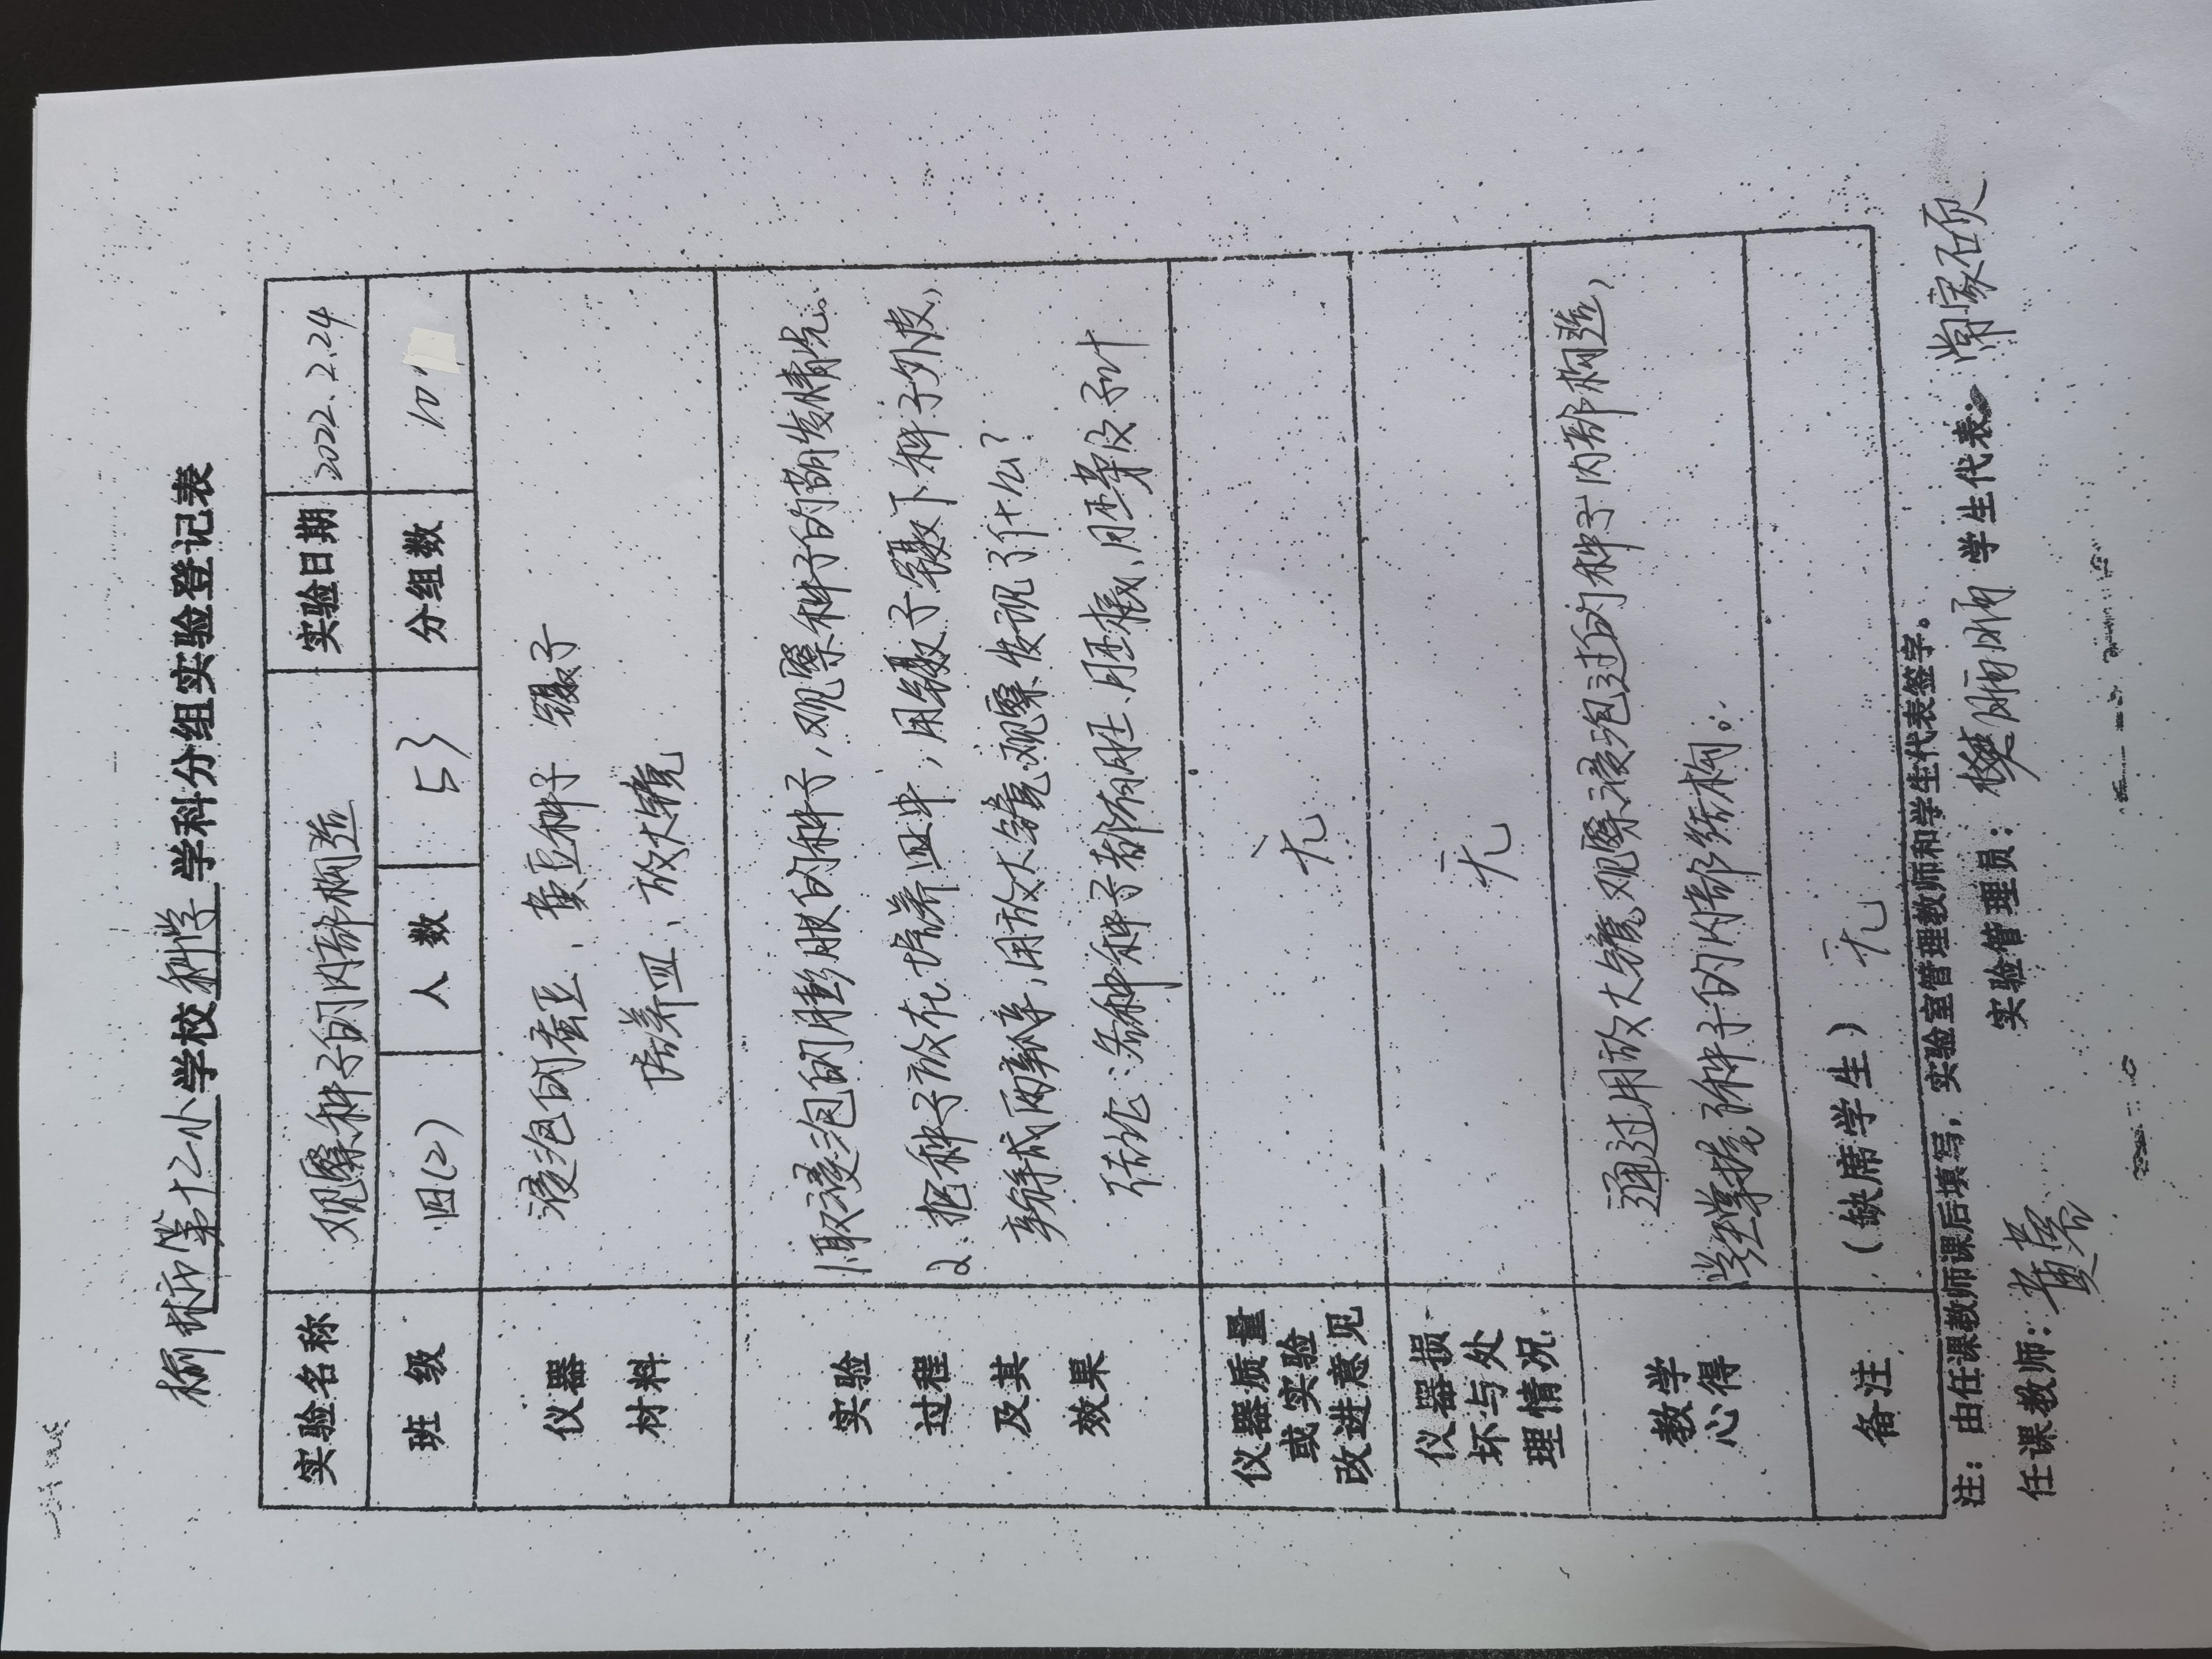 榆林市第十二小学校科学学科分组实验登记表
实验名称 观察种子的内部构造 实验日期 2022.2.24
班 级 四(2) 人 数 53 分组数 10
仪器 浸泡的蚕豆、黄豆种子 镊子
材料 培养皿、放大镜
实验 1取浸泡的膨胀的种子,观察种子的萌发情况.
过程 2、把种子放在培养皿中,用镊子镊下种子外皮,
及其 辦成两瓣,用放大镜观察发现了什么?
效果 结论:各种种子都有胚、胚根、胚芽及子叶
仪器质量
或实验
改进意见 无
仪器损
坏与处
理情况 无
教学 通过用放大镜观察浸泡过的种子内部构造,
心得 学生掌握了种子的内部结构.
备注 (缺席学生) 无
注: 由任课教师课后填写,实验室管理教师和学生代表签字。
任课教师: 黄 实验管理员: 樊丽丽 学生代表: 常家硕